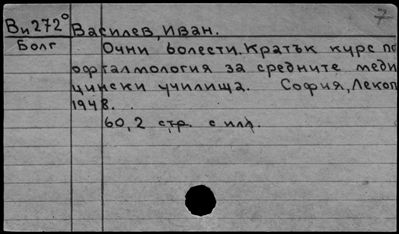 7
Ви272°
Васильев, Иван.
Болг
Очни болести. Кратък курс по
офталмология за средните меди
цински училища. София, Лекоп
1948.
60, 2 стр. с ил.